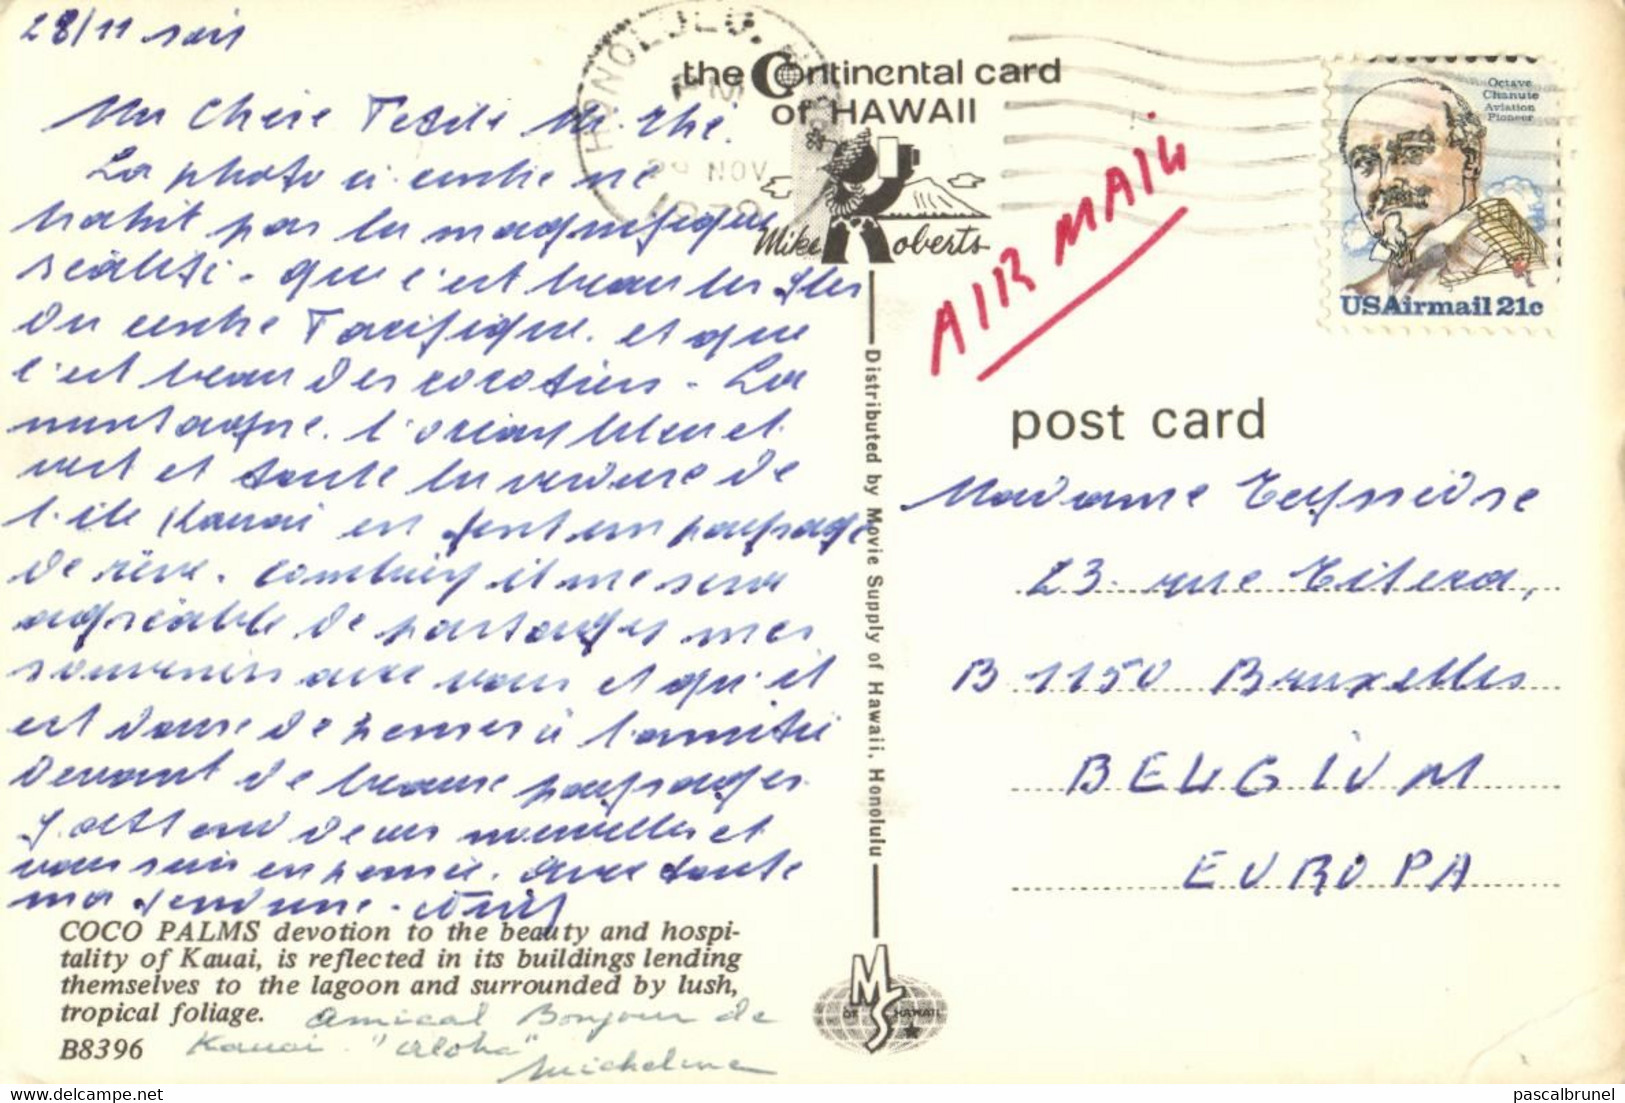 28/11 soir
Ma Chère
La photo ci contre ne
trahit pas la magnifique
réalité - que c'est beau les Iles
du centre Pacifique. et que
c'est beau des cocotiers - La
montagne. l'océan bleu et
vert et toute la verdure de
l'ile Kauai en font un paysage
de rêve. Combien il me sera
agréable de partager mes
souvenirs avec vous et qu'il
est doux de penser à l'amitié
devant de beaux paysages.
J'attend de vos nouvelles et
vous suis en pensée. Avec toute
ma
COCO PALMS devotion to the beauty and hospi-
tality of Kauai, is reflected in its buildings lending
themselves to the lagoon and surrounded by lush,
tropical foliage.
B8396
Amical Bonjour de
Kauai. "Aloha"
Micheline
HONOLULU, HI
PM
28 NOV
the Continental card
of HAWAII
Mike Roberts
Distributed by Movie Supply of Hawaii, Honolulu
MS
OF HAWAII
AIR MAIL
Octave
Chanute
Aviation
Pioneer
USAirmail 21c
post card
Madame Teyssèdre
23. rue Titeca,
B 1150 Bruxelles
BELGIUM
EUROPA
pascalbrunel